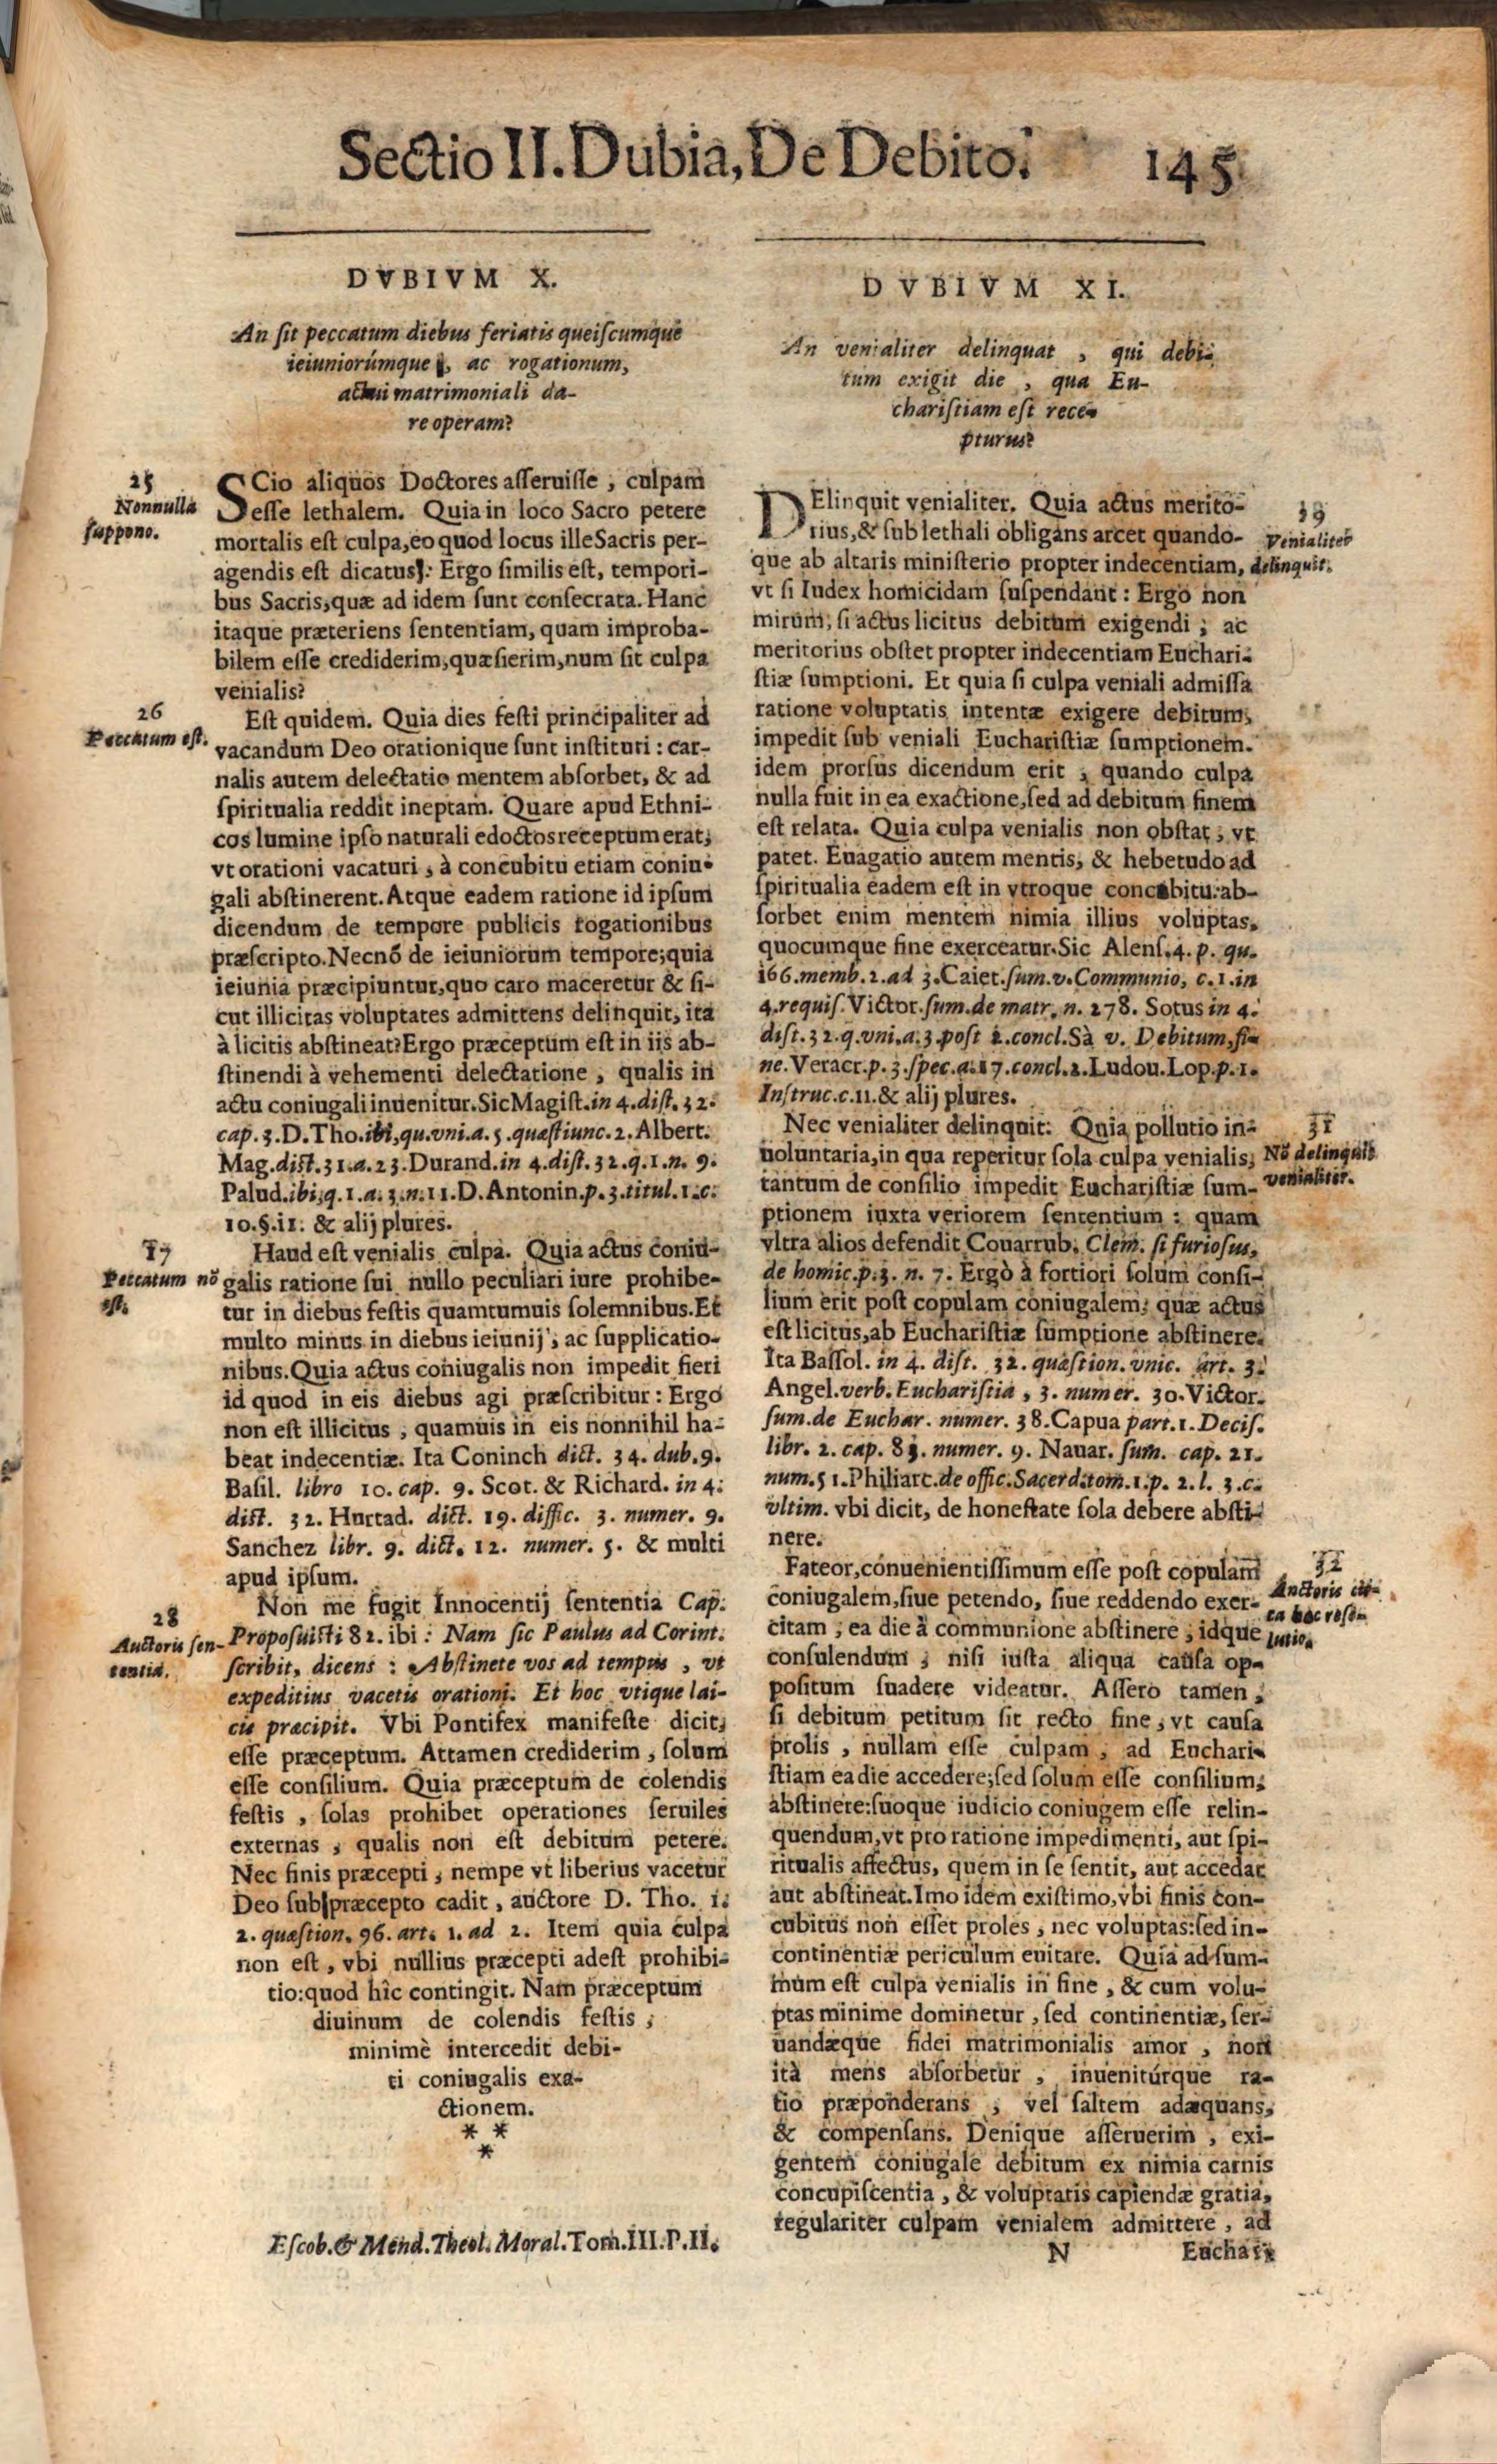 Sectio II. Dubia, De Debito. 145
DVBIVM X.
An ſit peccatum diebus feriatis queiſcumque
ieiuniorúmque, ac rogationum,
actui matrimoniali da-
re operam?
25
Nonnulla
ſuppono.
SCio aliquos Doctores aſſeruiſſe, culpam
eſſe lethalem. Quia in loco Sacro petere
mortalis eſt culpa, eo quod locus ille Sacris per-
agendis eſt dicatus: Ergo ſimilis eſt, tempori-
bus Sacris, quæ ad idem ſunt conſecrata. Hanc
itaque præteriens ſententiam, quam improba-
bilem eſſe crediderim, quæſierim, num ſit culpa
venialis?
26
Peccatum eſt.
Eſt quidem. Quia dies feſti principaliter ad
vacandum Deo orationique ſunt inſtituti: car-
nalis autem delectatio mentem abſorbet, & ad
ſpiritualia reddit ineptam. Quare apud Ethni-
cos lumine ipſo naturali edoctos receptum erat,
vt orationi vacaturi, à concubitu etiam coniu-
gali abſtinerent. Atque eadem ratione id ipſum
dicendum de tempore publicis rogationibus
præſcripto. Necnõ de ieiuniorum tempore; quia
ieiunia præcipiuntur, quo caro maceretur & ſi-
cut illicitas voluptates admittens delinquit, ita
à licitis abſtineat? Ergo præceptum eſt in iis ab-
ſtinendi à vehementi delectatione, qualis in
actu coniugali inuenitur. Sic Magiſt. in 4. diſt. 32.
cap. 3. D. Tho. ibi, qu. vni. a. 5. quæſtiunc. 2. Albert.
Mag. diſt. 31. a. 23. Durand. in 4. diſt. 32. q. 1. n. 9.
Palud. ibi, q. 1. a. 3. n. 11. D. Antonin. p. 3. titul. 1. c.
10. §. 11. & alij plures.
17
Peccatum nõ
eſt.
Haud eſt venialis culpa. Quia actus coniu-
galis ratione ſui nullo peculiari iure prohibe-
tur in diebus feſtis quamtumuis ſolemnibus. Et
multo minus in diebus ieiunij, ac ſupplicatio-
nibus. Quia actus coniugalis non impedit fieri
id quod in eis diebus agi præſcribitur: Ergo
non eſt illicitus, quamuis in eis nonnihil ha-
beat indecentiæ. Ita Coninch dict. 34. dub. 9.
Baſil. libro 10. cap. 9. Scot. & Richard. in 4.
diſt. 32. Hurtad. dict. 19. diffic. 3. numer. 9.
Sanchez libr. 9. dict. 12. numer. 5. & multi
apud ipſum.
28
Auctoris ſen-
tentia.
Non me fugit Innocentij ſententia Cap.
Propoſuiſti 82. ibi: Nam ſic Paulus ad Corint.
ſcribit, dicens: Abſtinete vos ad tempus, vt
expeditius vacetis orationi. Et hoc vtique lai-
cis præcipit. Vbi Pontifex manifeſte dicit,
eſſe præceptum. Attamen crediderim, ſolum
eſſe conſilium. Quia præceptum de colendis
feſtis, ſolas prohibet operationes ſeruiles
externas, qualis non eſt debitum petere.
Nec finis præcepti, nempe vt liberius vacetur
Deo ſub præcepto cadit, auctore D. Tho. 1.
2. quæſtion. 96. art. 1. ad 2. Item quia culpa
non eſt, vbi nullius præcepti adeſt prohibi-
tio: quod hîc contingit. Nam præceptum
diuinum de colendis feſtis,
minimè intercedit debi-
ti coniugalis exa-
ctionem.
* *
*
Eſcob. & Mend. Theol. Moral. Tom. III. P. II.
DVBIVM XI.
An venialiter delinquat, qui debi-
tum exigit die, qua Eu-
chariſtiam eſt rece-
pturus?
29
Venialiter
delinquit.
DElinquit venialiter. Quia actus merito-
rius, & ſub lethali obligans arcet quando-
que ab altaris miniſterio propter indecentiam,
vt ſi Iudex homicidam ſuſpendant: Ergo non
mirum, ſi actus licitus debitum exigendi; ac
meritorius obſtet propter indecentiam Euchari-
ſtiæ ſumptioni. Et quia ſi culpa veniali admiſſa
ratione voluptatis intentæ exigere debitum,
impedit ſub veniali Euchariſtiæ ſumptionem.
idem prorſus dicendum erit, quando culpa
nulla fuit in ea exactione, ſed ad debitum finem
eſt relata. Quia culpa venialis non obſtat, vt
patet. Euagatio autem mentis, & hebetudo ad
ſpiritualia eadem eſt in vtroque concubitu: ab-
ſorbet enim mentem nimia illius voluptas,
quocumque fine exerceatur. Sic Alenſ. 4. p. qu.
166. memb. 2. ad 3. Caiet. ſum. v. Communio, c. 1. in
4. requiſ. Victor. ſum. de matr. n. 278. Sotus in 4.
diſt. 32. q. vni. a. 3. poſt 2. concl. Sà v. Debitum, fi-
ne. Veracr. p. 3. ſpec. a. 17. concl. 2. Ludou. Lop. p. 1.
Inſtruc. c. 11. & alij plures.
31
Nõ delinquit
venialiter.
Nec venialiter delinquit: Quia pollutio in-
uoluntaria, in qua reperitur ſola culpa venialis,
tantum de conſilio impedit Euchariſtiæ ſum-
ptionem iuxta veriorem ſententium: quam
vltra alios defendit Couarrub. Clem. ſi furioſus,
de homic. p. 3. n. 7. Ergò à fortiori ſolum conſi-
lium erit poſt copulam coniugalem, quæ actus
eſt licitus, ab Euchariſtiæ ſumptione abſtinere.
Ita Baſſol. in 4. diſt. 32. quæſtion. vnic. art. 3.
Angel. verb. Euchariſtia, 3. numer. 30. Victor.
ſum. de Euchar. numer. 38. Capua part. 1. Deciſ.
libr. 2. cap. 83. numer. 9. Nauar. ſum. cap. 21.
num. 51. Philiarc. de offic. Sacerd. tom. 1. p. 2. l. 3. c.
vltim. vbi dicit, de honeſtate ſola debere abſti-
nere.
32
Auctoris cir-
ca hoc reſo-
lutio.
Fateor, conuenientiſſimum eſſe poſt copulam
coniugalem, ſiue petendo, ſiue reddendo exer-
citam, ea die à communione abſtinere, idque
conſulendum, niſi iuſta aliqua cauſa op-
poſitum ſuadere videatur. Aſſero tamen,
ſi debitum petitum ſit recto fine, vt cauſa
prolis, nullam eſſe culpam, ad Euchari-
ſtiam ea die accedere; ſed ſolum eſſe conſilium,
abſtinere: ſuoque iudicio coniugem eſſe relin-
quendum, vt pro ratione impedimenti, aut ſpi-
ritualis affectus, quem in ſe ſentit, aut accedat
aut abſtineat. Imo idem exiſtimo, vbi finis con-
cubitus non eſſet proles, nec voluptas: ſed in-
continentiæ periculum euitare. Quia ad ſum-
mum eſt culpa venialis in fine, & cum volu-
ptas minime dominetur, ſed continentiæ, ſer-
uandæque fidei matrimonialis amor, non
ità mens abſorbetur, inuenitúrque ra-
tio præponderans, vel ſaltem adæquans,
& compenſans. Denique aſſeruerim, exi-
gentem coniugale debitum ex nimia carnis
concupiſcentia, & voluptatis capiendæ gratia,
regulariter culpam venialem admittere, ad
N Euchari-